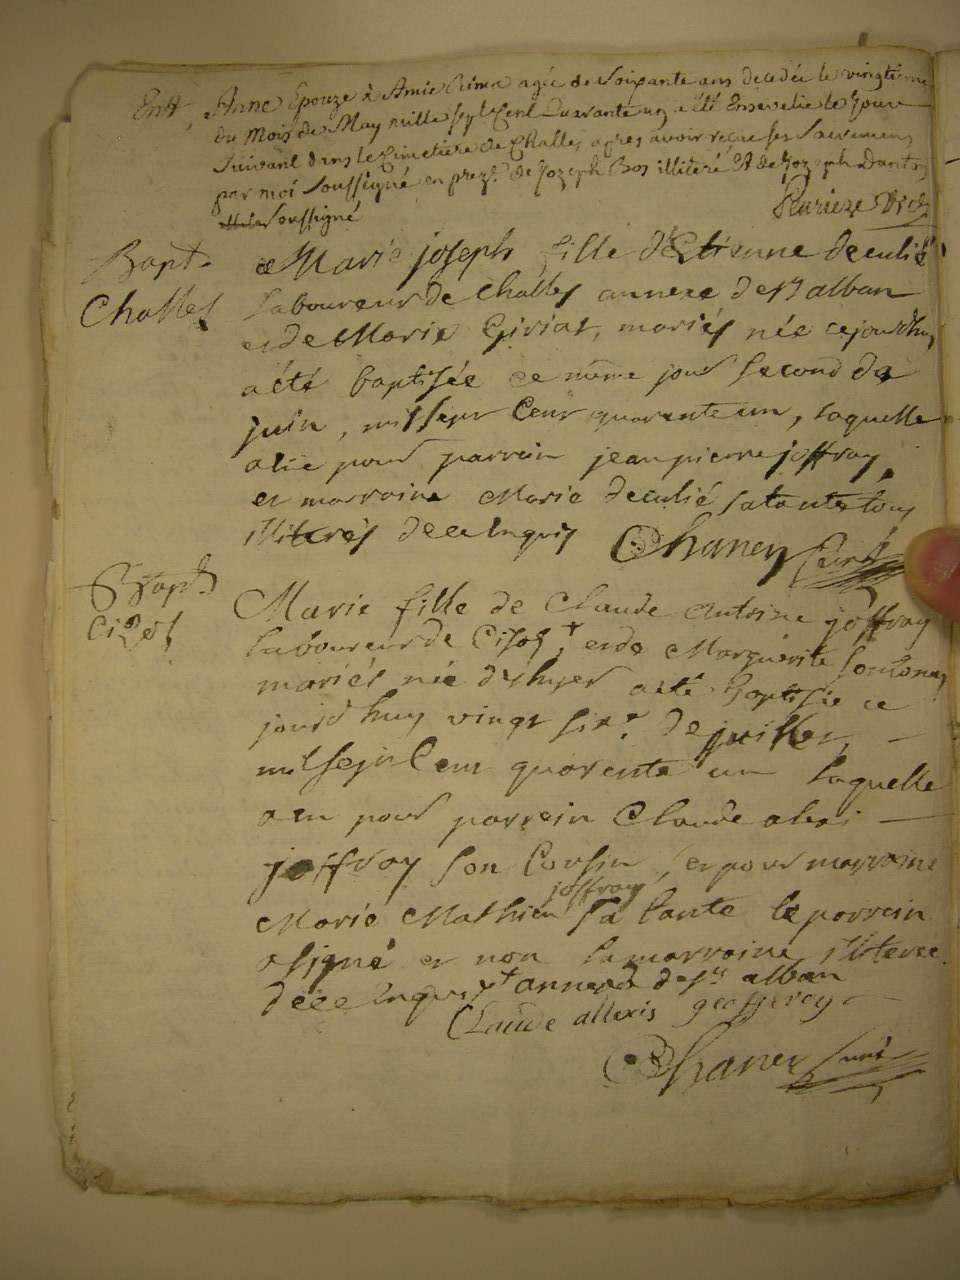 Ent. Anne Epouze à Amie agée de Soixante ans decedée le vingtieme
du Mois de May mille sept Cent Quarante un a été Ensevelie le Jour
Suivant dans le Cimetiere de Challes apres avoir reçue ses Sacremens
par moi Soussigné en prez.e de Jozeph Bos illiteré et de Jozeph Danton
Soussigné
Bapt. Marie joseph fille d'Etienne deculié
Challes Laboureur de challes annexe de St alban
et de Marie Giriat, mariés née cejourdhuy
a été baptisée ce même jour second de
juin, mil sept Cent quarente un, laquelle
a eie pour parrain jean pierre joffray,
et marraine Marie deculié sa tante tous
illiterés de ce Enquis Chaney Curé
Bapt. Marie fille de Claude Antoine joffray
Cizes Laboureur de Cises + et de Marguerite
mariés née d'hyer a eté Baptisée ce
jourd'huy vingt six.e de juillet,
mil sept Cent quarente un laquelle
a eu pour parrain Claude alexi
joffray son Cousin, et pour marraine
joffray
Marie Mathieu sa tante le parrain
a signé et non la marraine illiterée
de ce Enquis + annexe de St alban
Claude allexis geoffferey
Chaney Curé